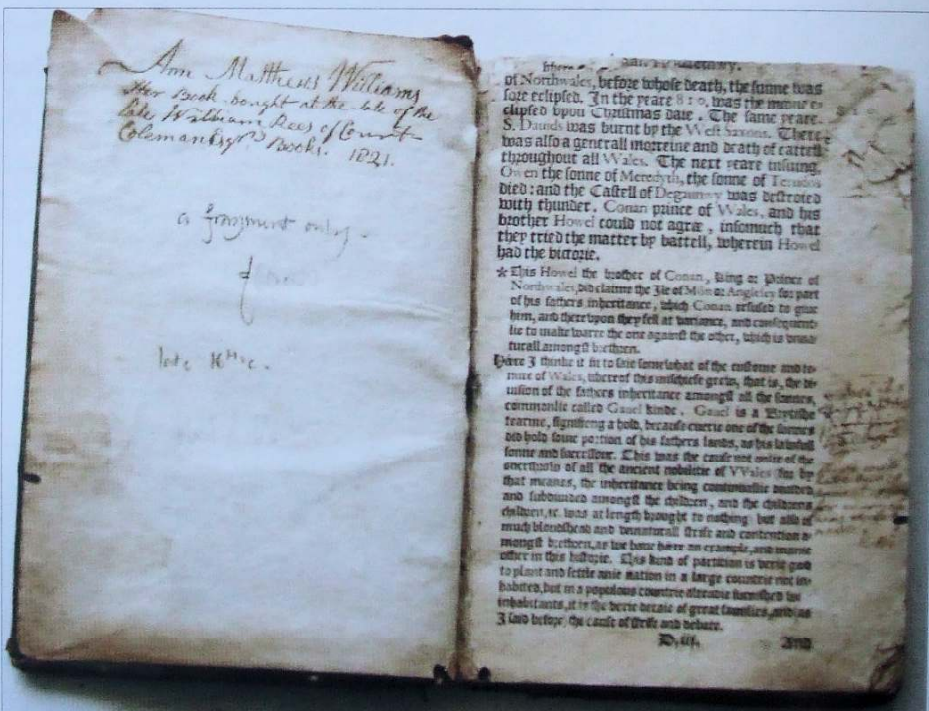 Ann Matthews Williams
Her Book bought at the sale of the
late William Rees of Court
Coleman Esqrs Books. 1821.
a fragment only -
late
of Northwales, before whose death, the sunne was
sore eclipsed. In the yeare 810, was the moone e-
clipsed vpon Christmas daie. The same yeare
S. Dauids was burnt by the West Saxons. There
was also a generall morreine and death of cattell
throughout all Wales. The next yeare insuing,
Owen the sonne of Meredyth, the sonne of
died: and the Castell of Deganwy was destroied
with thunder. Conan prince of Wales, and his
brother Howel could not agræ, insomuch that
they tried the matter by battell, wherein Howel
had the victorie.
* This Howel the brother of Conan, King or Prince of
Northwales, did claime the Ile of Môn or Anglesey for part
of his fathers inheritance, which Conan refused to giue
him, and therevpon they fell at variance, and consequent-
lie to make warre the one against the other, which is vnna-
turall amongst brethren.
Here I thinke it fit to saie somewhat of the custome and te-
nure of Wales, whereof this mischiefe grew, that is, the di-
uision of the fathers inheritance amongst all the sonnes,
commonlie called Gauel kinde. Gauel is a Brytishe
tearme, signifieng a hold, because euerie one of the sonnes
did hold some portion of his fathers lands, as his lawfull
sonne and successour. This was the cause not onlie of the
ouerthrow of all the ancient nobilitie of VVales (for by
that meanes, the inheritance being continuallie diuided
and subdiuided amongst the children, and the childrens
children, &c. was at length brought to nothing) but also of
much bloudshead and vnnaturall strife and contention a-
mongst brethren, as we haue here an example, and manie
other in this historie. This kind of partition is verie good
to plant and settle anie nation in a large countrie not in-
habited, but in a populous countrie alreadie furnished with
inhabitants, it is the verie decaie of great families, and (as
I said before) the cause of strife and debate.
D.iij. And